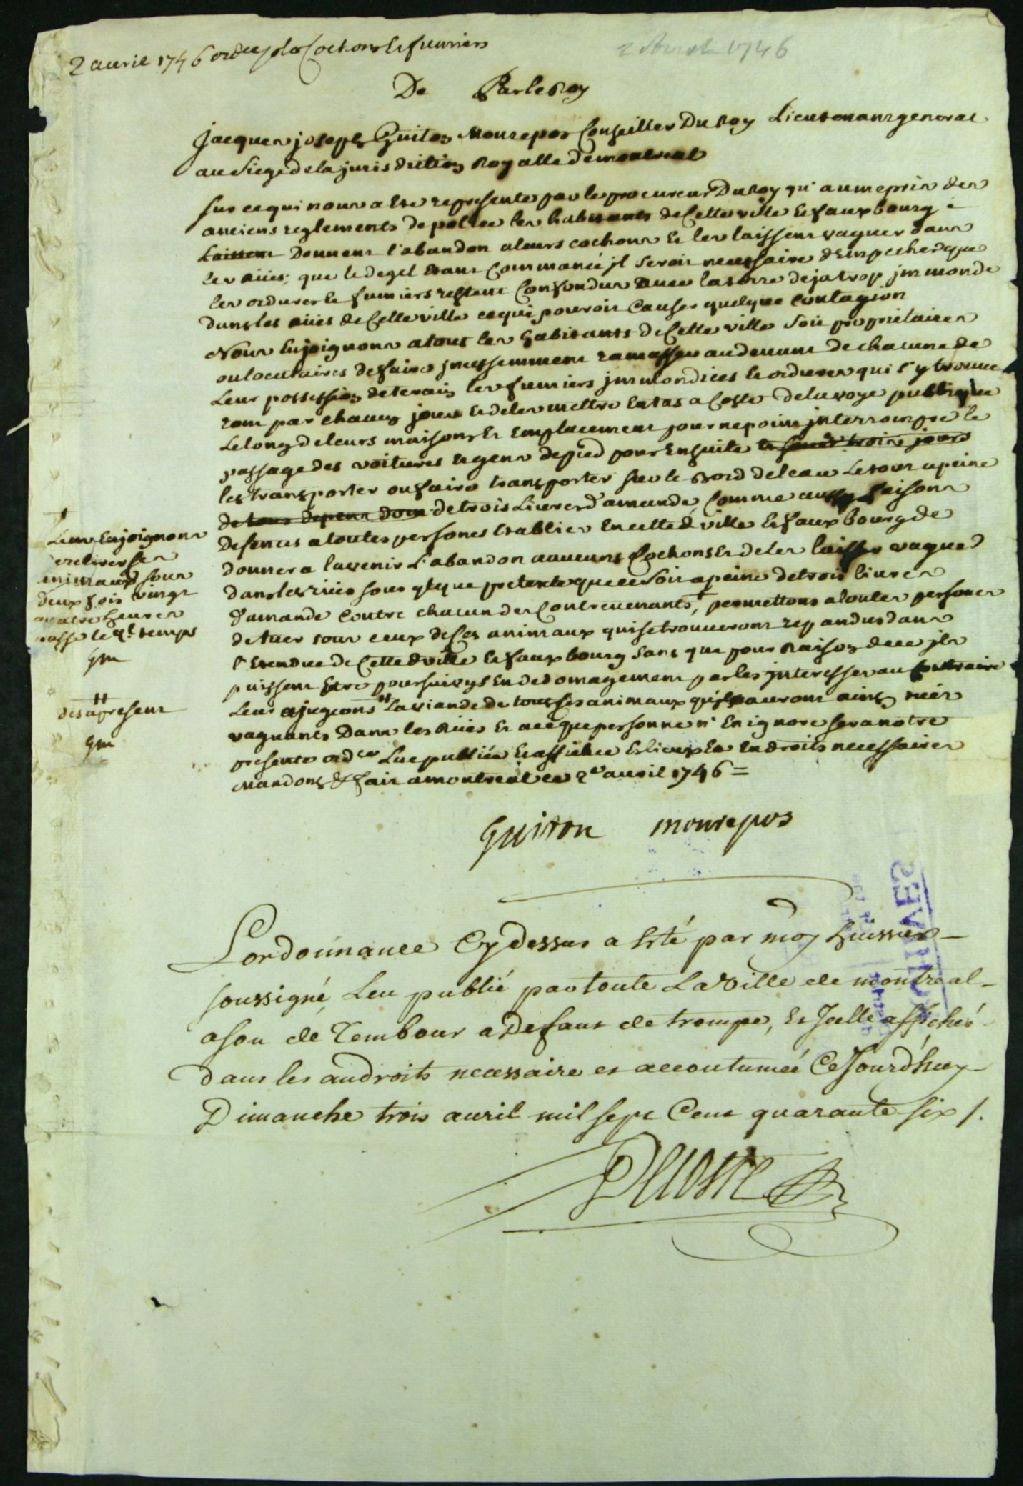 2 avril 1746 ordce pr les Cochons et fumiers
2 Avril 1746
De Par le Roy
Jacques joseph Guiton Monrepos Conseiller Du Roy Lieutenant general
au Siege de la jurisdiction Royalle de montreal
Sur ce qui nous a ete represente par le procureur Du Roy qu'au mepris des
anciens reglements de police les habitants de Cette ville et fauxbourg
donnent l'abandon a leurs cochons et les laissent vaguer dans
les ruës; que le degel etant Commancé jl seroit necessaire d'Empecher que
les ordures et fumiers restent Confondus avec la terre deja trop jmmonde
dans les ruës de Cette ville ce qui pouroit Causer quelque Contagion
Nous Enjoignons a tous les habitants de Cette ville Soit proprietaires
ou locataires de faire jncessemment ramasser au devant de chacune de
Leur possession de terain les fumiers jmmondices et ordures qui s'y trouve
ront par chacun jour et de les mettre en tas a Coste de la voye publique
Le long de leurs maisons et Emplacement pour ne point jnterrompre le
passage des voitures et gens de pied pour Ensuite
les transporter ou faire transporter sur le Bord de leau Le tout a peine
de trois Livres d'amande, Comme aussy faisons
Defences a toutes persones Etablies en cette d. ville et fauxbourg de
donner a l'avenir L'abandon a aucuns Cochons et de les laisser vaguer
dans les ruës sous quelque pretexte que ce soit a peine de trois livres
d'amande Contre chacun des Contrevenants, permettons a toutes persones
de tuer tous ceux de Ces animaux qui se trouveront repandus dans
l'Etendue de Cette d. ville et fauxbourg sans que pour Raison de ce jls
puissent Etre poursuivys En dedomagement par les jnteressés au Contraire
Leur ajugeons # La viande de tous les animaux qu'ils auront ainsy tués
vaguants Dans les Ruës Et a ce que personne n'En ignore sera notre
presente ordce Lue publiée et affichée Es lieux et Endroits necessaires
Mandons &a fait a montreal ce 2e avril 1746 =
Leur Enjoignons
animaux sous
deux fois vingt
quatre heures
passé le qt temps
Gm
#
des a present
Gm
Guiton monrepos
ARCHIVES
Lordonnance Cy dessus a Eté par moy huissier
soussigné, Leu publié par toute La Ville de montreal
a son de Tembour a Defaut de trompe, Et Jcelle affiché
dans les androits necessaire et accoutumeé Ce Jourd'huy
Dimanche trois avril mil sept Cent quarante six /.
Decoste